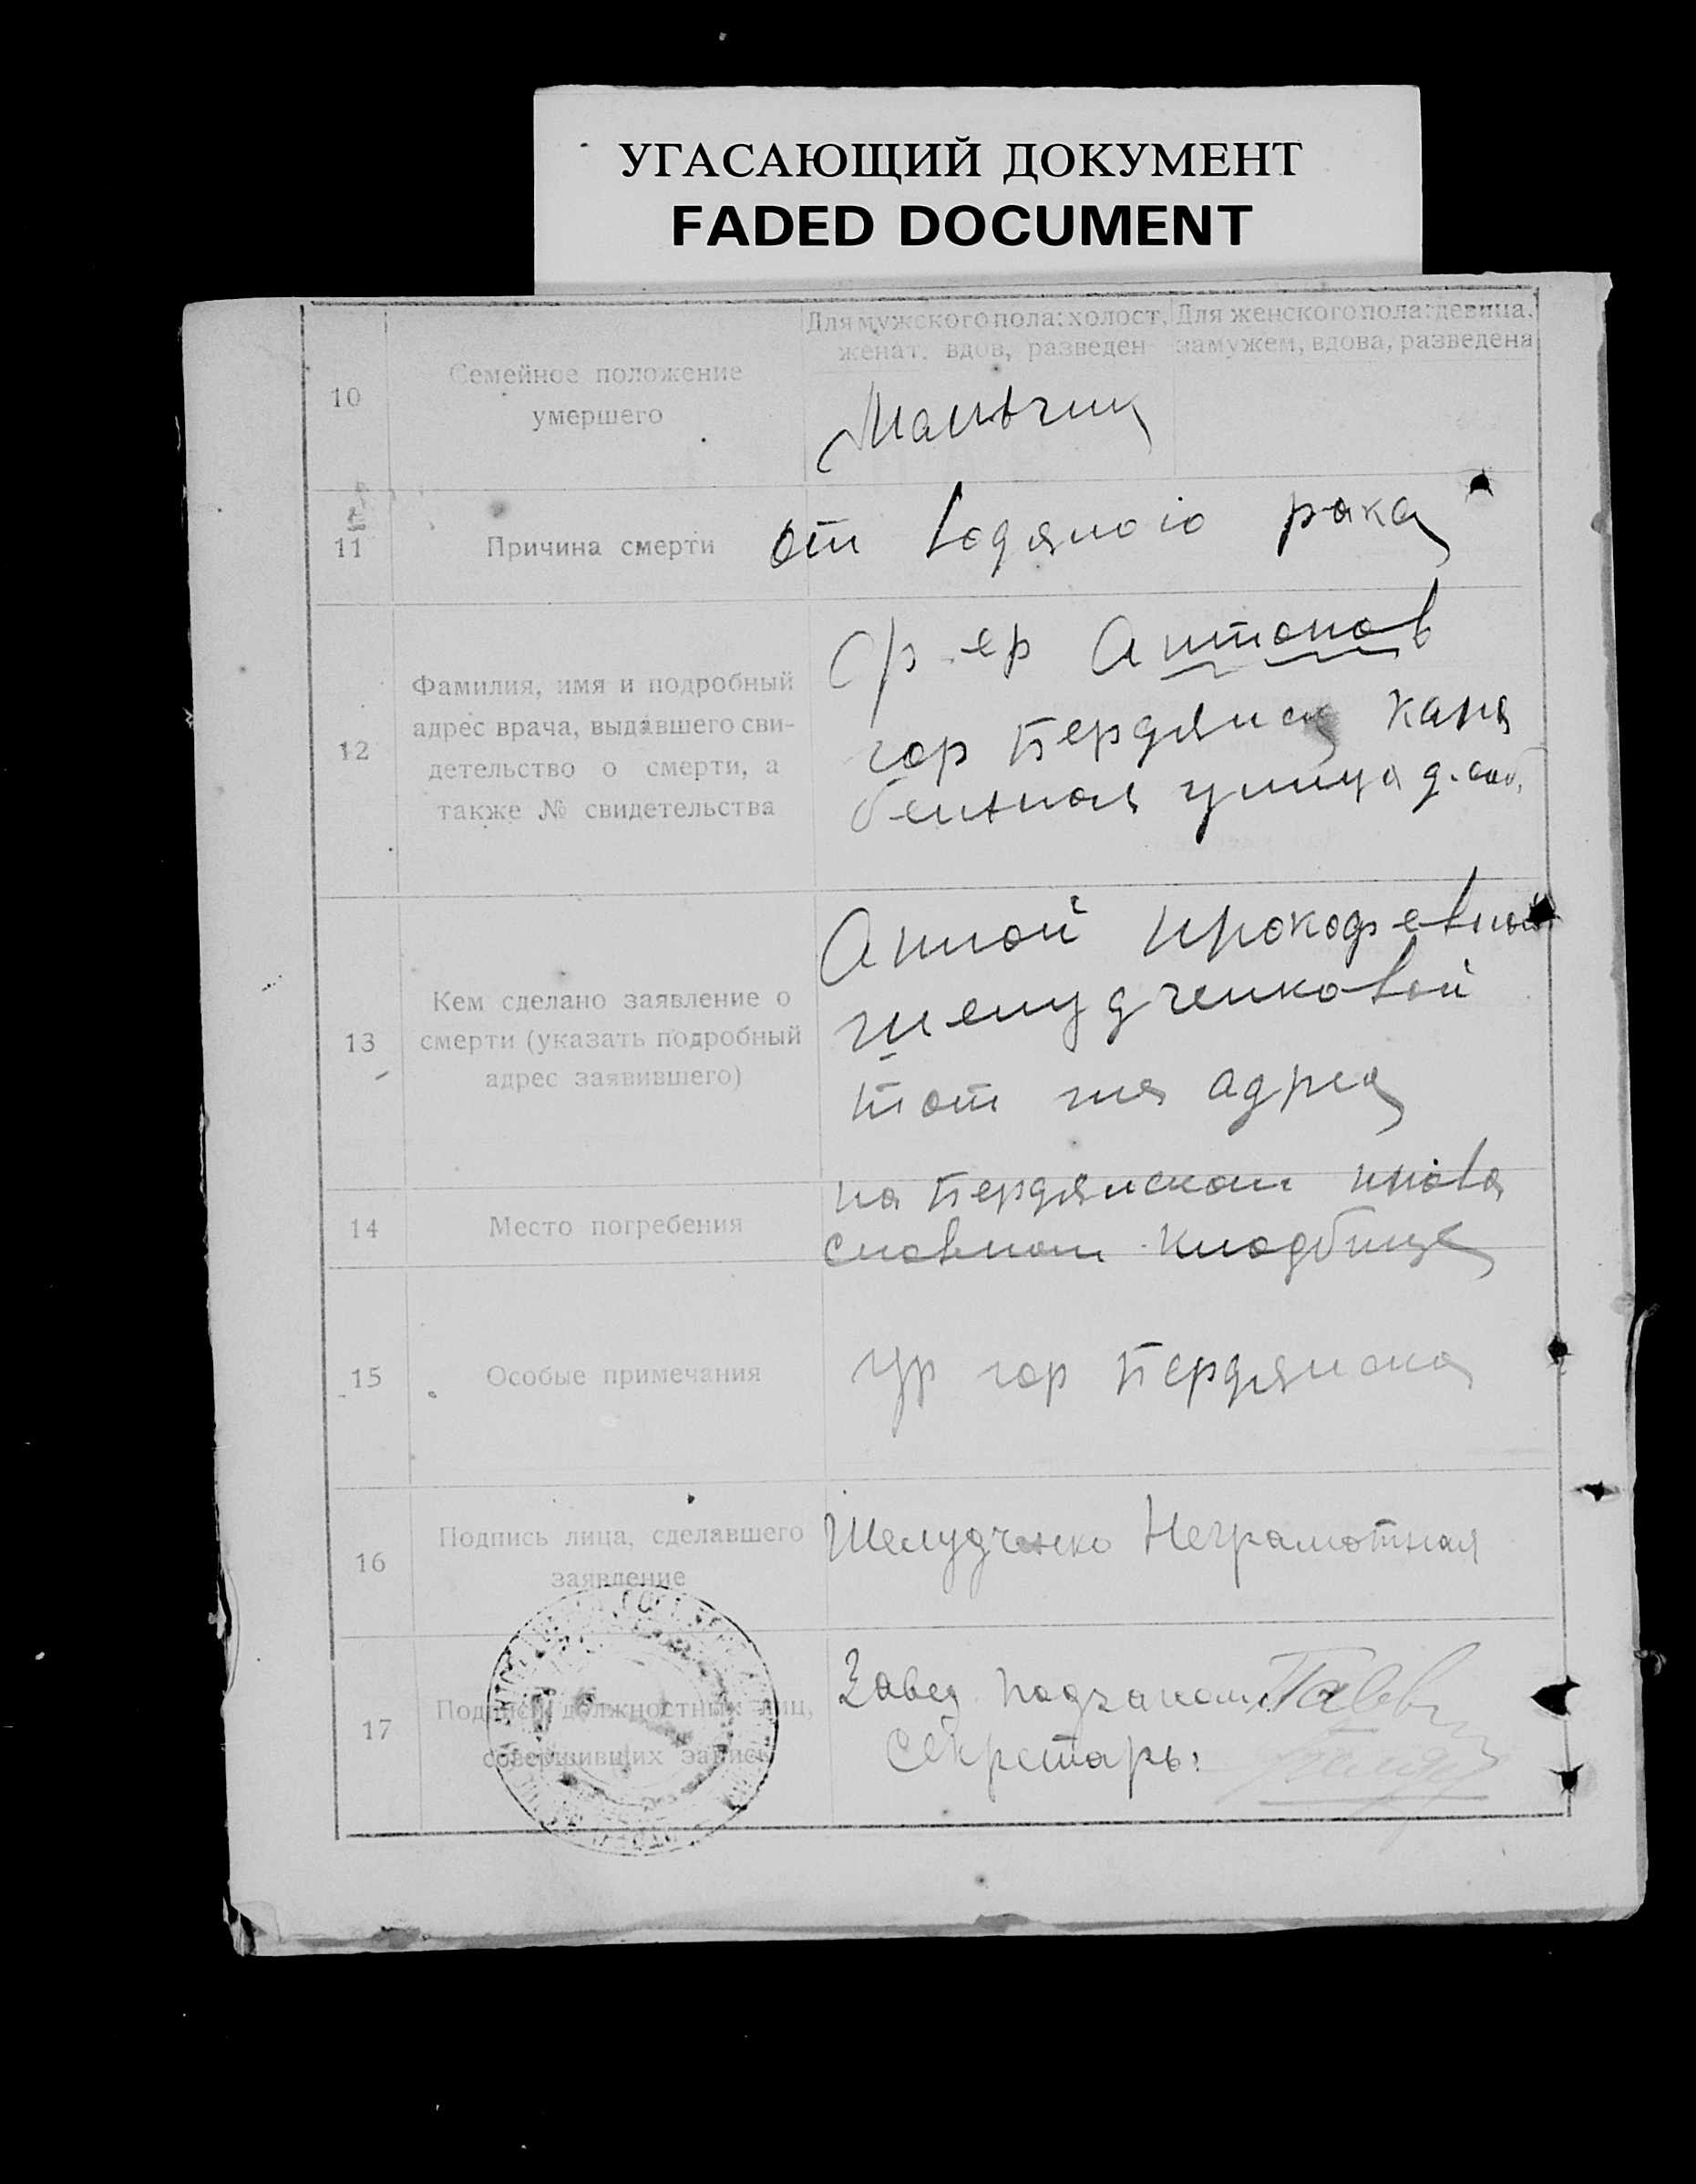 УГАСАЮЩИЙ ДОКУМЕНТ
FADED DOCUMENT
Для мужского пола: холост, женат, вдов, разведен
Для женского пола: девица, замужем, вдова, разведена
10
Семейное положение
умершего
Мальчик
11
Причина смерти
от водяного рака
12
Фамилия, имя и подробный
адрес врача, выдавшего сви-
детельство о смерти, а
также № свидетельства
Антонов
гор Бердянск
улица д. соб.
13
Кем сделано заявление о
смерти (указать подробный
адрес заявившего)
Анной Прокофевной
Шелудченковой
тот же адрес
14
Место погребения
на Бердянском права
славном кладбище
15
Особые примечания
Ур гор Бердянска
16
Подпись лица, сделавшего
заявление
Шелудченко Неграмотная
17
Подписи должностных лиц,
совершивших запись
Завед
Секретарь: